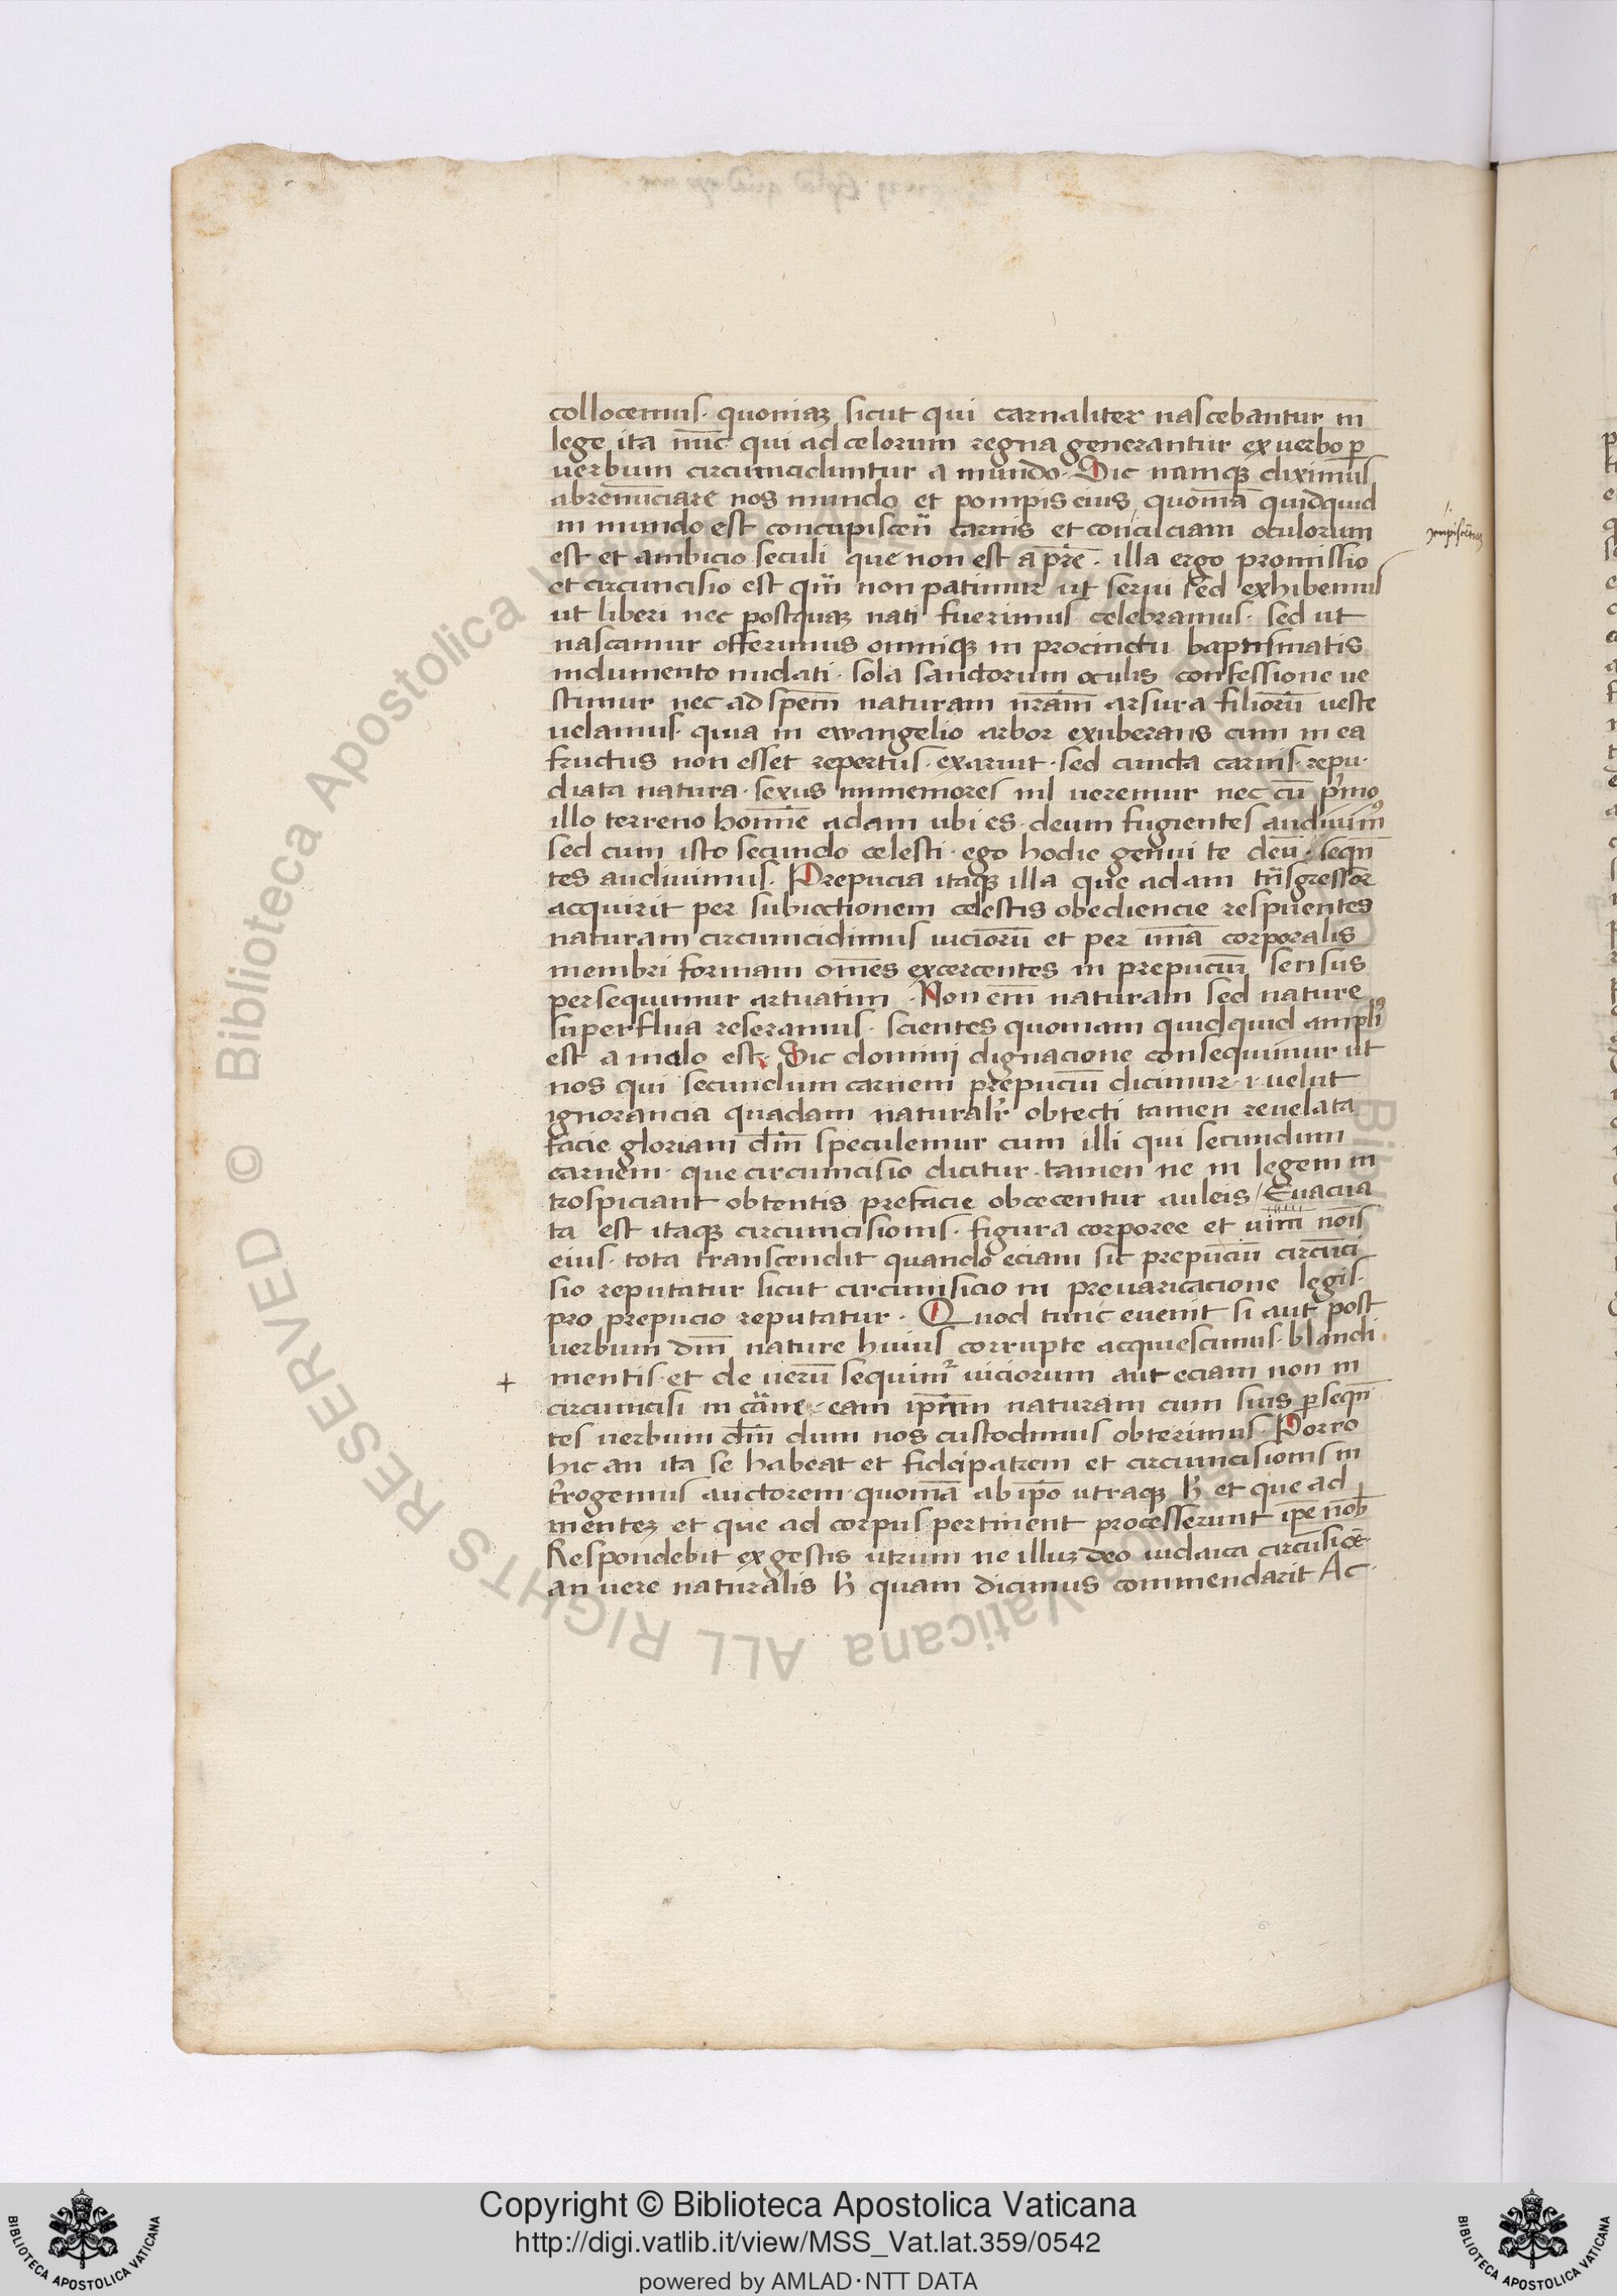 collocemus· quoniaꝫ sicut qui carnaliter nascebantur in
lege ita nūc qui ad celorum regna generantur ex verbo ꝑ
verbum circumciduntur a mundo· Sic namqꝫ diximus
abrenūciare nos mundo et pompis eius quoniā quidquid
in mundo est concupiscen̄ carnis et oculorum
est et ambicio seculi que non est a pr̄e· illa ergo promissio
et circuncisio est qm̄ non patimur ut serui sed exhibemus
ut liberi nec postquaꝫ nati fuerimus celebramus· sed ut
nascamur offerimus omniqꝫ in procinctu baptismatis
indumento nudati· sola sanctorum oculis confessione ue
stimur nec ad spem̄ naturam nr̄am arsura filiorū ueste
uelamus· quia in ewangelio arbor exuberans cum in ea
fructus non esset repertus· exaruit· sed cuncta carnis· repu·
diata natura· sexus immemores nil veremur nec cū pͥmo
illo terreno homīe adam ubi es· deum fugientes audiuimꝰ
sed cum isto secundo celesti· ego hodie genui te deū· seqn̄
tes audiuimus· Prepucia itaqꝫ illa que adam trn̄sgressor̄
acquirit per subiectionem celestis obediencie respuentes
naturam circumcidimus uiciorū et per unā corporalis
membri formam om̄es excercentes in prepuciū sensus
persequimur artuatim· Non em̄ naturam sed nature
superflua reseramus· scientes quoniam quidquid ampliꝰ
est a malo est· Sic domini dignacione consequimur ut
nos qui secundum carnem prepuciū dicimur· ⁊ uelut
ignorancia quadam naturalr̄ obtecti tamen reuelata
facie gloriam dn̄i speculemur cum illi qui secundum
carnem· que circumcisio dicitur· tamen ne in legem in
trospiciant obtentis prefacie obcecentur auleis/ Euacua
ta est itaqꝫ circumcisionis· figura corporee et noīs
eius· tota transcendit quando eciam sic prepuciū circūci
sio reputatur sicut circumsicio in preuaricacione legis·
pro prepucio reputatur· Quod tunc euenit si aut post
uerbum dn̄i nature huius corrupte acquiescimus· blandi
mentis· et de uerū sequimᷣ uiciorum aut eciam non in
circumcisi in carne· eam ip̄am naturam cum suis ꝑseqn̄
tes uerbum dn̄i dum nos custodimus obterimus· Porro
hic an ita se habeat et fidei patrem et circumcisionis in
t̄rogemus auctorem· quoniā ab ip̄o utraqꝫ h̄ et que ad
menteꝫ et que ad corpus pertinent processerunt ip̄e nob̄
Respondebit ex gestis utrum ne illuꝫ deo iudaica circūsicē·
an vere naturalis h̄ quam dicimus commendarit Ac·
+
Copyright © Biblioteca Apostolica Vaticana
http://digi.vatlib.it/view/MSS_Vat.lat.359/0542
powered by AMLAD·NTT DATA
BIBLIOTECA APOSTOLICA VATICANA
BIBLIOTECA APOSTOLICA VATICANA
© Biblioteca Apostolica Vaticana ALL RIGHTS RESERVED